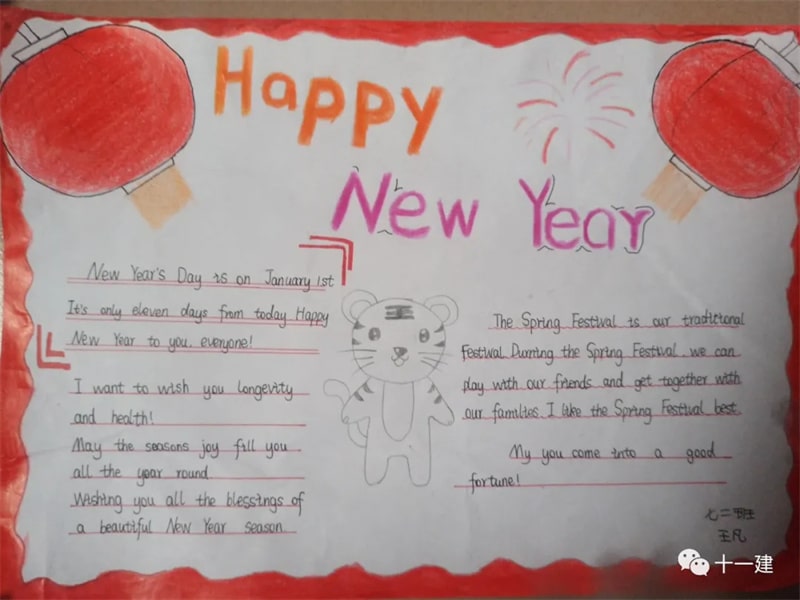 Happy
New Year
New Year's Day is on January 1st
It's only eleven days from today Happy
New Year to you. everyone!
I want to wish you longevity
and health!
May the seasons joy fill you
all the year round
Wishing you all the blessings of
a beautiful New Year season
The Spring Festival is our traditional
Festival Durring the Spring Festival. we can
play with our friends and get together with
our families. I like the Spring Festival best
My you come into a good
fortune!
七二班
王凡
十一建